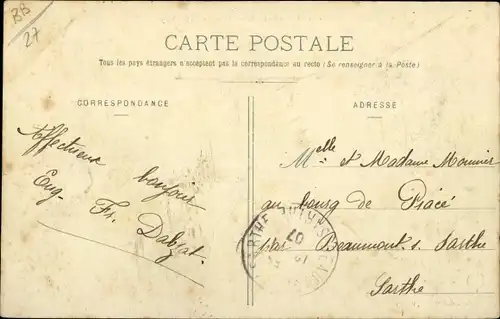 BB
27
CARTE POSTALE
Tous les pays étrangers n'acceptent pas la correspondance au recto (Se renseigner à la Poste)
CORRESPONDANCE
ADRESSE
Affectueux bonjour
Eug. Fr.
Melle et Madame Monnier
au bourg de Piacé
par Beaumont s. Sarthe
Sarthe
SARTHE
07